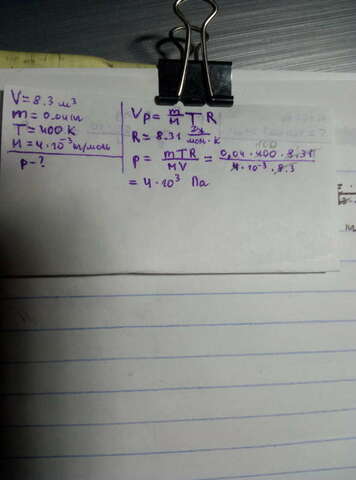 V = 8.3 м³
m = 0.04 кг
T = 400 K
M = 4 · 10⁻³ кг/моль
p - ?
Vp = m/M T R
R = 8.31 Дж/моль · K
p = mTR/MV = 0,04 · 400 · 8.31/4 · 10⁻³ · 8.3
= 4 · 10³ Па